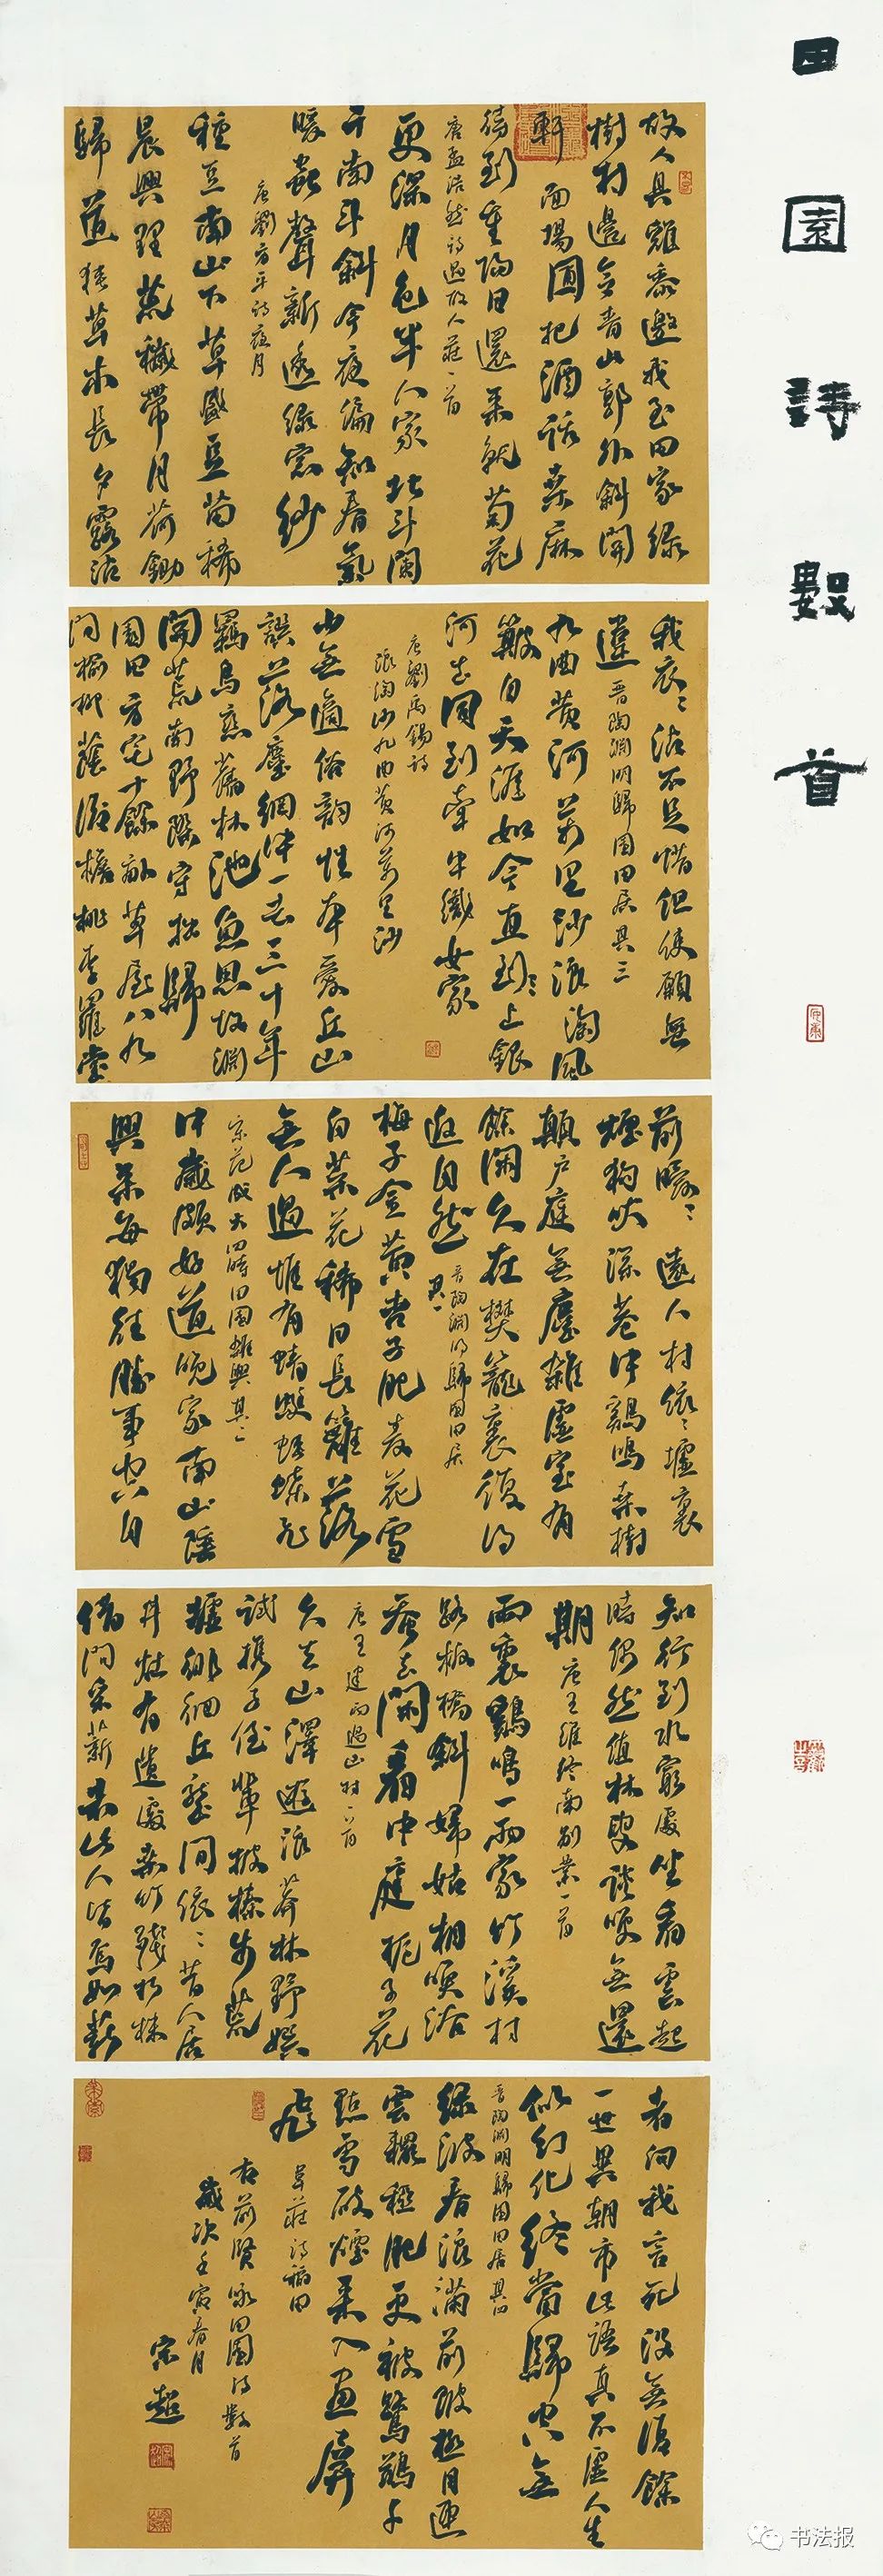 田園詩數首
故人具雞黍邀我至田家綠
樹村邊合青山郭外斜開
軒面場圃把酒話桑麻
待到重陽日還來就菊花
唐孟浩然詩過故人莊一首
更深月色半人家北斗闌
干南斗斜今夜偏知春氣
暖蟲聲新透綠窓紗
唐劉方平詩夜月
種豆南山下草盛豆苗稀
晨興理荒穢帶月荷鋤
歸道狹草木長夕露沾
我衣衣沾不足惜但使願無
違晉陶淵明歸園田居其三
九曲黄河萬里沙浪淘風
簸自天涯如今直到上銀
河去同到牽牛織女家
唐劉禹錫詩
浪淘沙九曲黄河萬里沙
少無適俗韵性本愛丘山
誤落塵網中一去三十年
羈鳥戀舊林池魚思故淵
開荒南野際守拙歸
園田方宅十餘畝草屋八九
間榆柳蔭後檐桃李羅堂
前曖曖遠人村依依墟裏
煙狗吠深巷中鷄鳴桑樹
顛户庭無塵雜虚室有
餘閑久在樊籠裏復得
返自然晉陶淵明歸園田居
其一
梅子金黄杏子肥麦花雪
白菜花稀日長籬落
無人過惟有蜻蜓蛺蝶飛
宋范成大四時田園雜興其二
中歲頗好道晚家南山陲
興來每獨往勝事空自
知行到水窮處坐看雲起
時偶然值林叟談笑無還
期唐王維終南别業一首
雨裏鷄鳴一兩家竹溪村
路板橋斜婦姑相喚浴
蠶去閑看中庭栀子花
唐王建雨過山村一首
久去山澤遊浪莽林野娱
試携子侄輩披榛步荒
墟徘徊丘壟間依依昔人居
井竈有遺處桑竹殘朽株
借問采薪者此人皆焉如薪
者向我言死没無復餘
一世異朝市此語真不虚人生
似幻化終當歸空無
晉陶淵明歸園田居其四
緑波春浪滿前陂極目連
雲䆉稏肥更被鷺鷀千
點雪破煙來入畫屏
飛韋莊詩稻田
右前賢咏田園詩數首
歲次壬寅春月
宗超
书法报